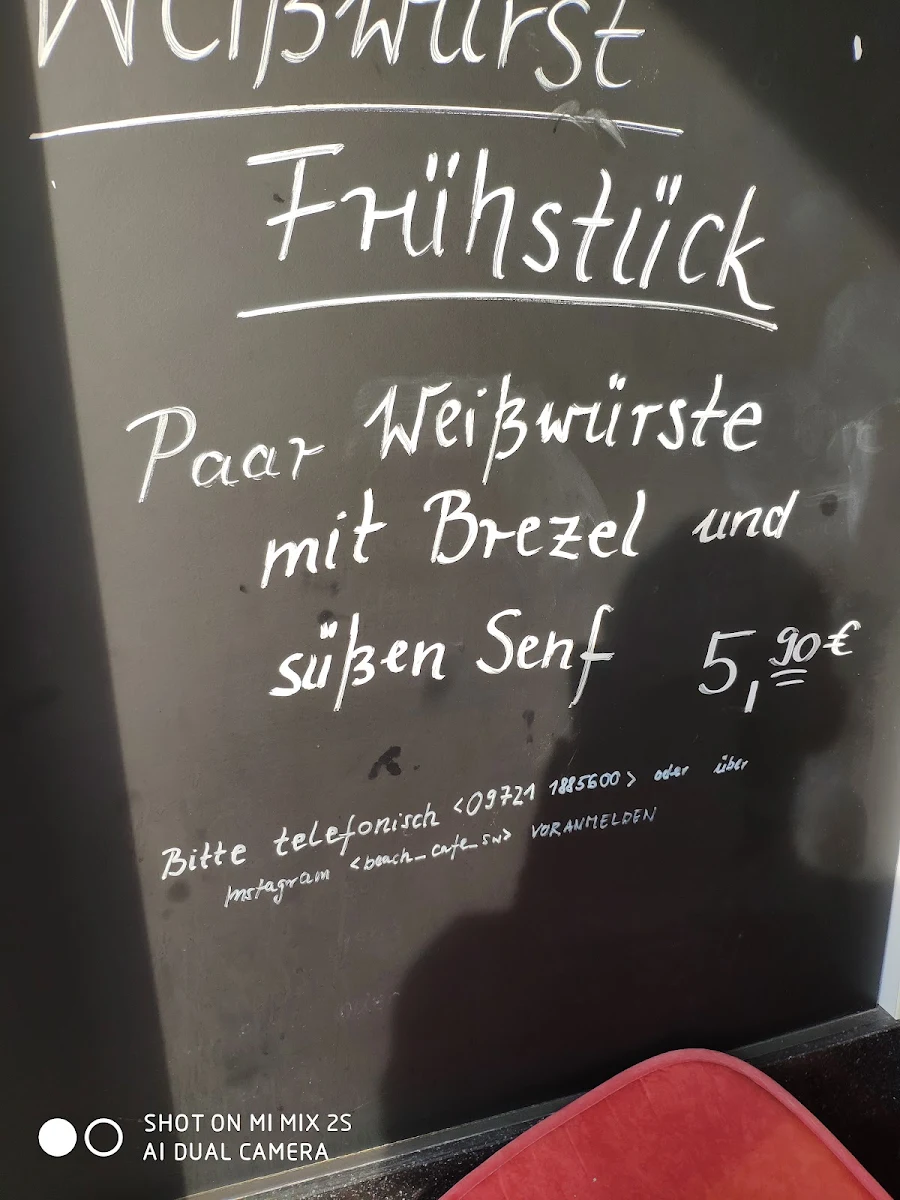 Weißwurst
Frühstück
Paar Weißwürste
mit Brezel und
süßen Senf 5,90€
Bitte telefonisch <09721 1885600> oder über
Instagram <beach_cafe_sw> VORANMELDEN
SHOT ON MI MIX 2S
AI DUAL CAMERA